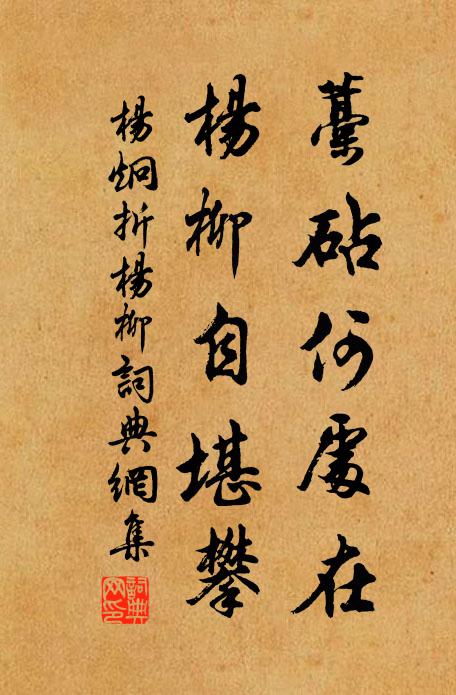 藁砧何處在
楊柳自堪攀
楊炯折楊柳詞典網集
詞典網印